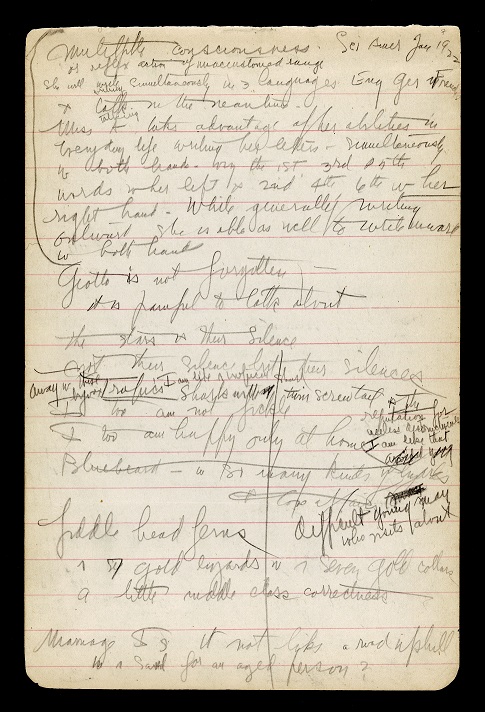 Multiple consciousness. Sci Amer Jan 1922
or reflex action of unaccustomed range
She will write simultaneously in 3 languages Eng Ger French
& talk in the meantime.
talking
Miss takes advantage of her abilities in
Everyday life writing her letters – simultaneously
w both hands. the 1st 3rd 5th
words w her left & 2nd 4th 6th w her
right hand. While generally writing
outward she is able as well to write inward
w both hands
Giotto is not forgotten —
it is painful to talk about
the stars & their silence
not their silence but their silences
away w these
I am like
Sharks
turn screw tail
& the
reputation for
useless
I am like that
I too am not fickle
I too am happy only at home
Bluebeard – in so many kinds
difficult young man
who visits about
fiddle head ferns
gold lizards w seven gold collars
a little middle class correctness
Marriage Is it not like a road uphill
in sand for an aged person?